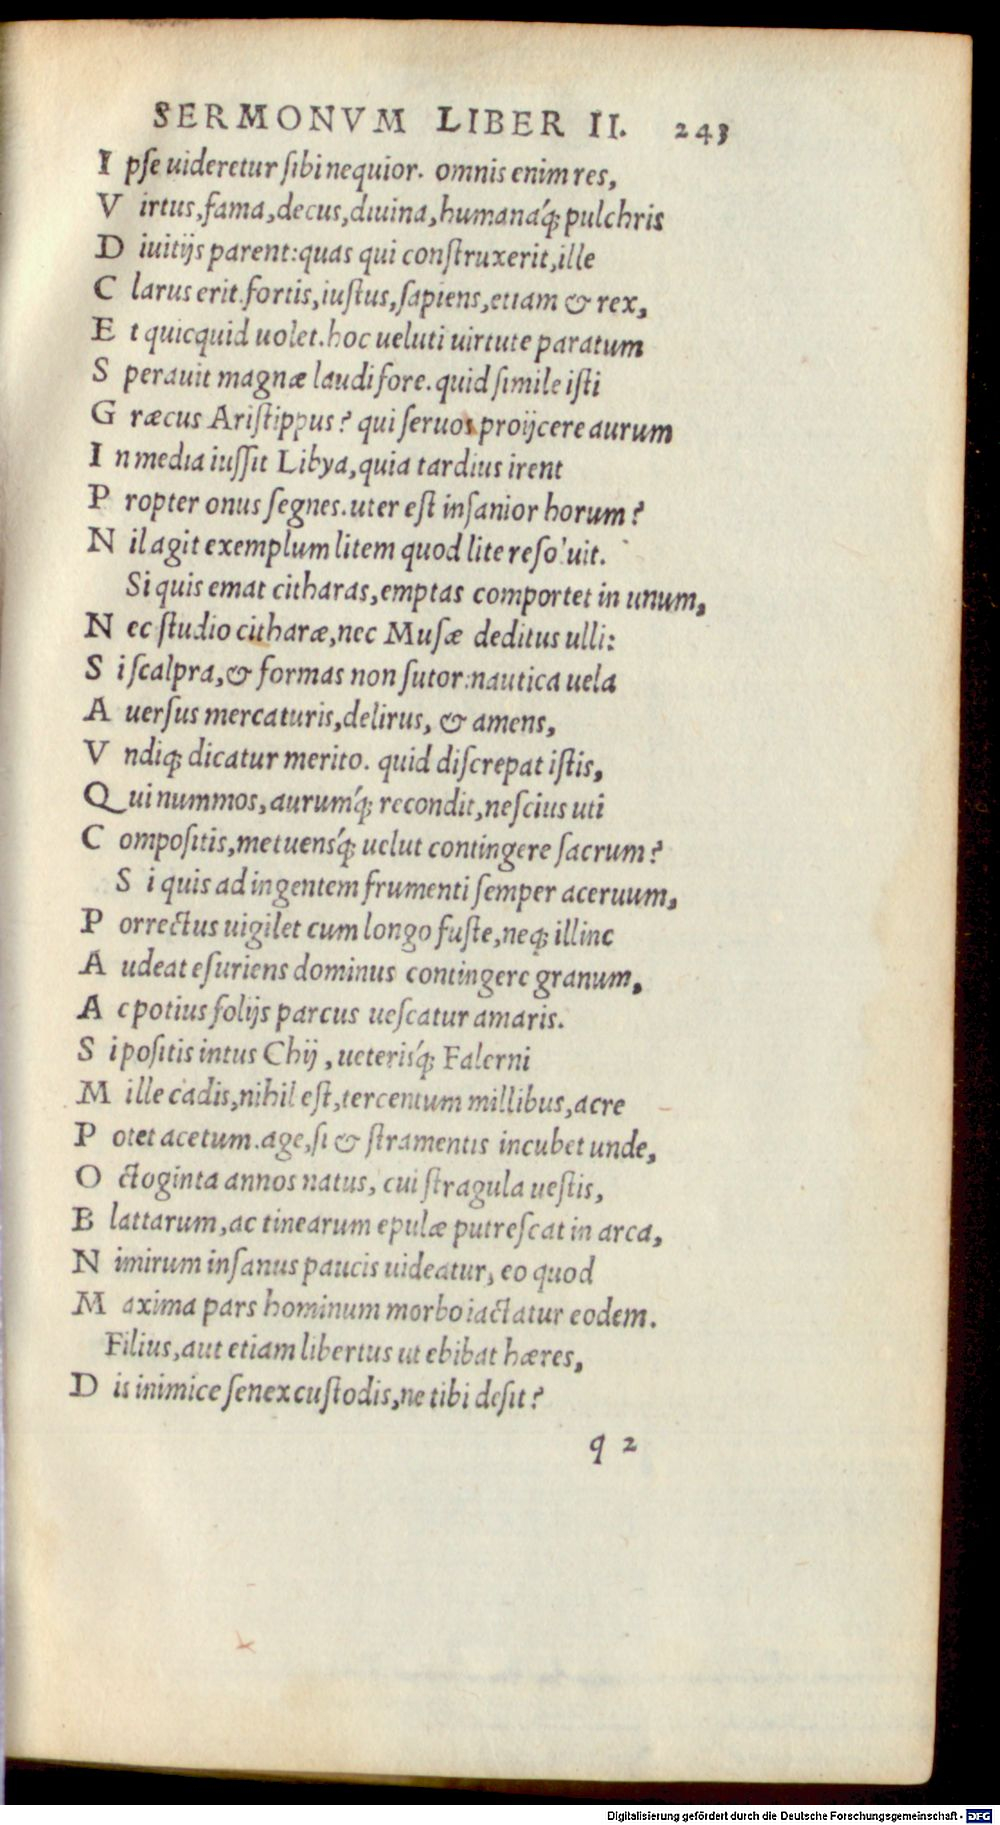 SERMONVM LIBER II. 243
I pse uideretur sibi nequior. omnis enim res,
V irtus, fama, decus, diuina, humanaq́; pulchris
D iuitijs parent: quas qui construxerit, ille
C larus erit. fortis, iustus, sapiens, etiam & rex,
E t quicquid uolet. hoc ueluti uirtute paratum
S perauit magnæ laudi fore. quid simile isti
G ræcus Aristippus? qui seruos proijcere aurum
I n media iussit Libya, quia tardius irent
P ropter onus segnes. uter est insanior horum?
N il agit exemplum litem quod lite resoluit.
Si quis emat citharas, emptas comportet in unum,
N ec studio citharæ, nec Musæ deditus ulli:
S i scalpra, & formas non sutor: nautica uela
A uersus mercaturis, delirus, & amens,
V ndiq; dicatur merito. quid discrepat istis,
Q ui nummos, aurumq́; recondit, nescius uti
C ompositis, metuensq́; uelut contingere sacrum?
S i quis ad ingentem frumenti semper aceruum,
P orrectus uigilet cum longo fuste, neq; illinc
A udeat esuriens dominus contingere granum,
A c potius folijs parcus uescatur amaris.
S i positis intus Chij, ueterisq́; Falerni
M ille cadis, nihil est, tercentum millibus, acre
P otet acetum. age, si & stramentis incubet unde,
O ctoginta annos natus, cui stragula uestis,
B lattarum, ac tinearum epulæ putrescat in arca,
N imirum insanus paucis uideatur, eo quod
M axima pars hominum morbo iactatur eodem.
Filius, aut etiam libertus ut ebibat hæres,
D is inimice senex custodis, ne tibi desit?
q 2
Digitalisierung gefördert durch die Deutsche Forschungsgemeinschaft - DFG